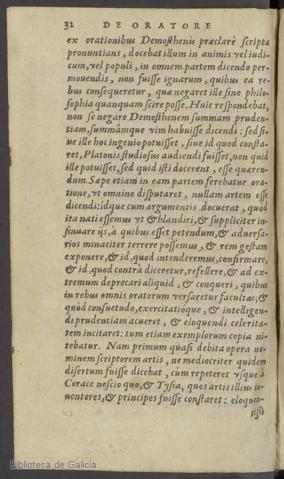 32 DE ORATORE
ex orationibus Demosthenis præclarè scripta
pronuntians, docebat illum in animis vel iudi-
cum, vel populi, in omnem partem dicendo per-
mouendis, non fuisse ignarum, quibus ea re-
bus consequeretur, quæ negaret ille sine philo-
sophia quanquam scire posse. Huic respondebat,
non se negare Demosthenem summam pruden-
tiam, summámque vim habuisse dicendi: sed si-
ue ille hoc ingenio potuisset, siue id quod consta-
ret, Platonis studiosus audiendi fuisset, non quid
ille potuisset, sed quid isti docerent, esse quæren-
dum. Sæpe etiam in eam partem ferebatur ora-
tione, vt omnino disputaret, nullam artem esse
dicendi: idque cum argumentis docuerat, quòd
ita nati essemus vt & blandiri, & suppliciter in-
sinuare ijs, à quibus esset petendum, & aduersa-
rios minaciter terrere possemus, & rem gestam
exponere, & id, quod intenderemus, confirmare,
& id, quod contrà diceretur, refellere, & ad ex-
tremum deprecari aliquid, & conqueri, quibus
in rebus omnis oratorum versaretur facultas, &
quòd consuetudo, exercitatióque, & intelligen-
di prudentiam acueret, & eloquendi celerita-
tem incitaret: tum etiam exemplorum copia ni-
tebatur. Nam primum quasi debita opera ne-
minem scriptorem artis, ne mediocriter quidem
disertum fuisse dicebat, cùm repeteret vsque à
Corace nescio quo, & Tysia, quos artis illius in-
uentores, & principes fuisse constaret: eloquen-
Biblioteca de Galicia